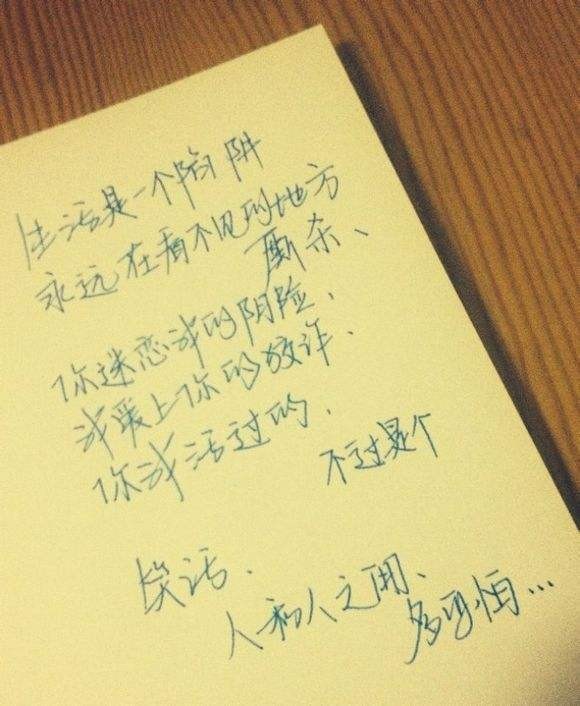 生活是一个陷阱
永远在看不见的地方
厮杀、
你迷恋我的阴险、
我爱上你的狡诈、
你我活过的、
不过是个
笑话、
人和人之间、
多可怕…